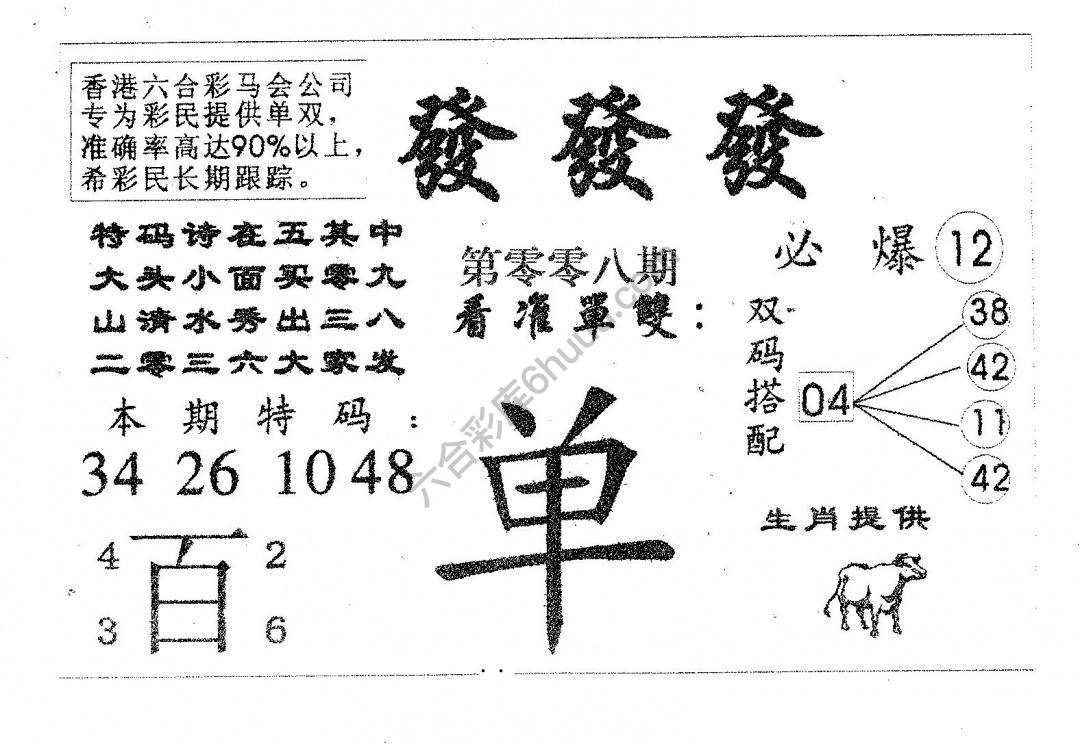 香港六合彩马会公司
专为彩民提供单双，
准确率高达90%以上，
希彩民长期跟踪。
發 發 發
特码诗在五其中
大头小面买零九
山清水秀出三八
二零三六大家发
本期特码：
34 26 10 48
4 百 2
3 6
第零零八期
看准單雙：
单
必爆 12
双码搭配
04
38
42
11
42
生肖提供
六合彩库6huu.com